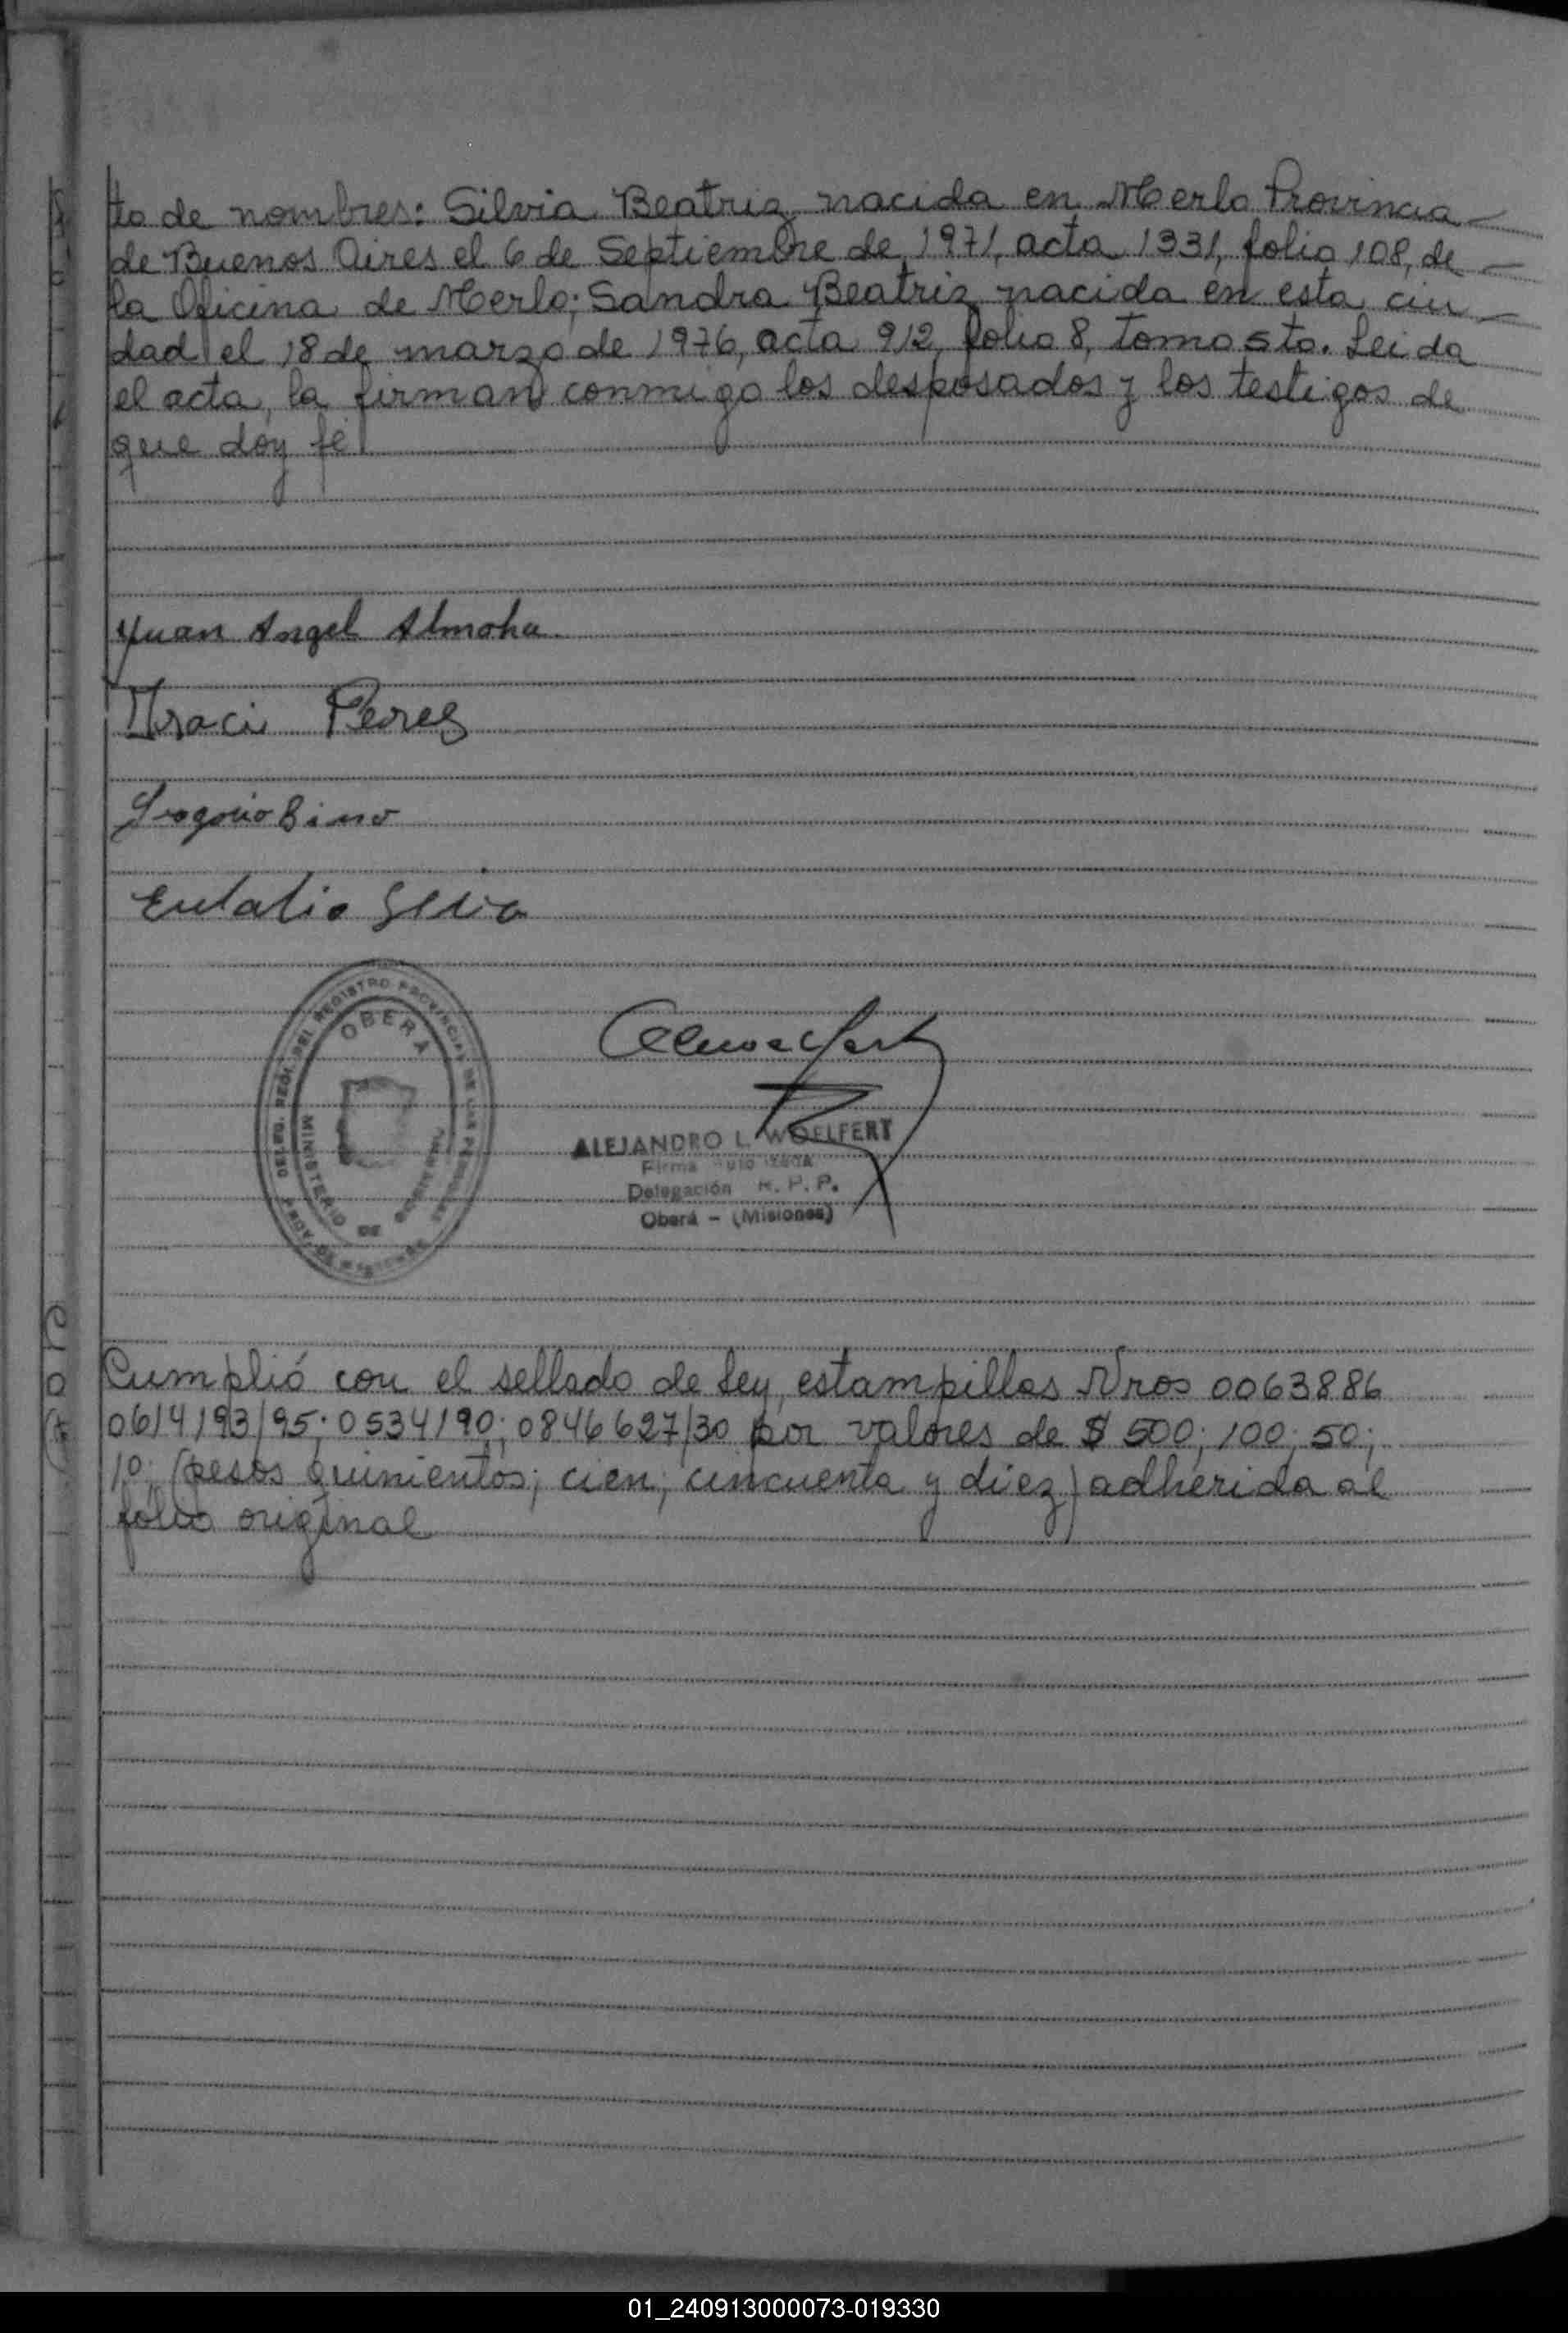 to de nombres: Silvia Beatriz nacida en Merlo Provincia
de Buenos Aires el 6 de Septiembre de 1971, acta 1331, folio 108, de
la Oficina de Merlo; Sandra Beatriz nacida en esta ciu
dad el 18 de marzo de 1976, acta 912, folio 8, tomo 5to. Leida
el acta, la firman conmigo los desposados y los testigos de
que doy fé
Juan Angel Almoha
Iraci Peres
Eulalio
REGISTRO PROVINCIAL DE LAS PERSONAS
OBERA
MINISTERIO DE
PROV. DE MISIONES
ALEJANDRO L. WOELFERT
Firma
Delegación R. P. P.
Oberá - (Misiones)
Cumplió con el sellado de Ley, estampillas Nros 0063886
0614193/95; 0534190; 0846627/30 por valores de $ 500; 100; 50;
10; (pesos quinientos; cien; cincuenta y diez) adherida al
folio original
01_240913000073-019330